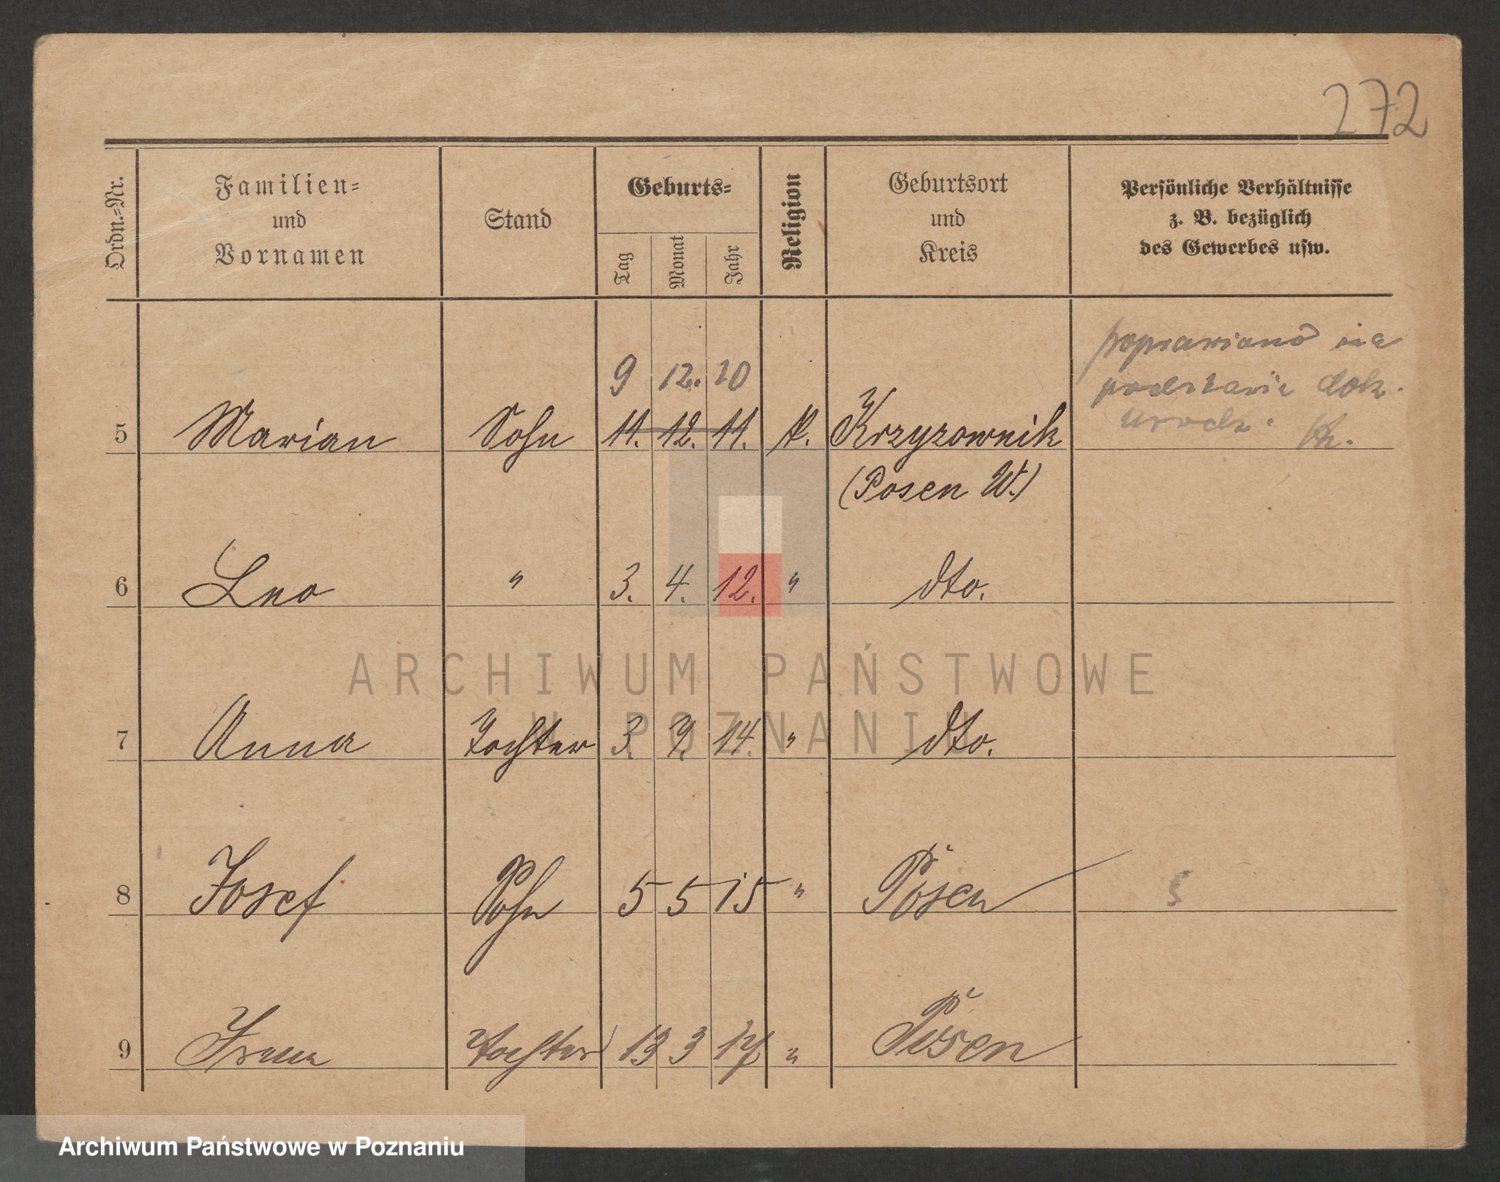 272
Ordn.=Nr.
Familien=
und
Vornamen
Stand
Geburts=
Tag
Monat
Jahr
Religion
Geburtsort
und
Kreis
Persönliche Verhältnisse
z. B. bezüglich
des Gewerbes usw.
9 12. 10
poprawiano na
podstawie dok.
urodz.
5 Marian Sohn 11. 12. 11. k. Krzyzownik
(Posen W.)
6 Leo " 3. 4. 12. " dto.
ARCHIWUM PAŃSTWOWE
W POZNANIU
7 Anna Tochter 3. 7. 14. " dto.
8 Josef Sohn 5 5 15 " Posen
9 Irene Tochter 13 3 17 " Posen
Archiwum Państwowe w Poznaniu